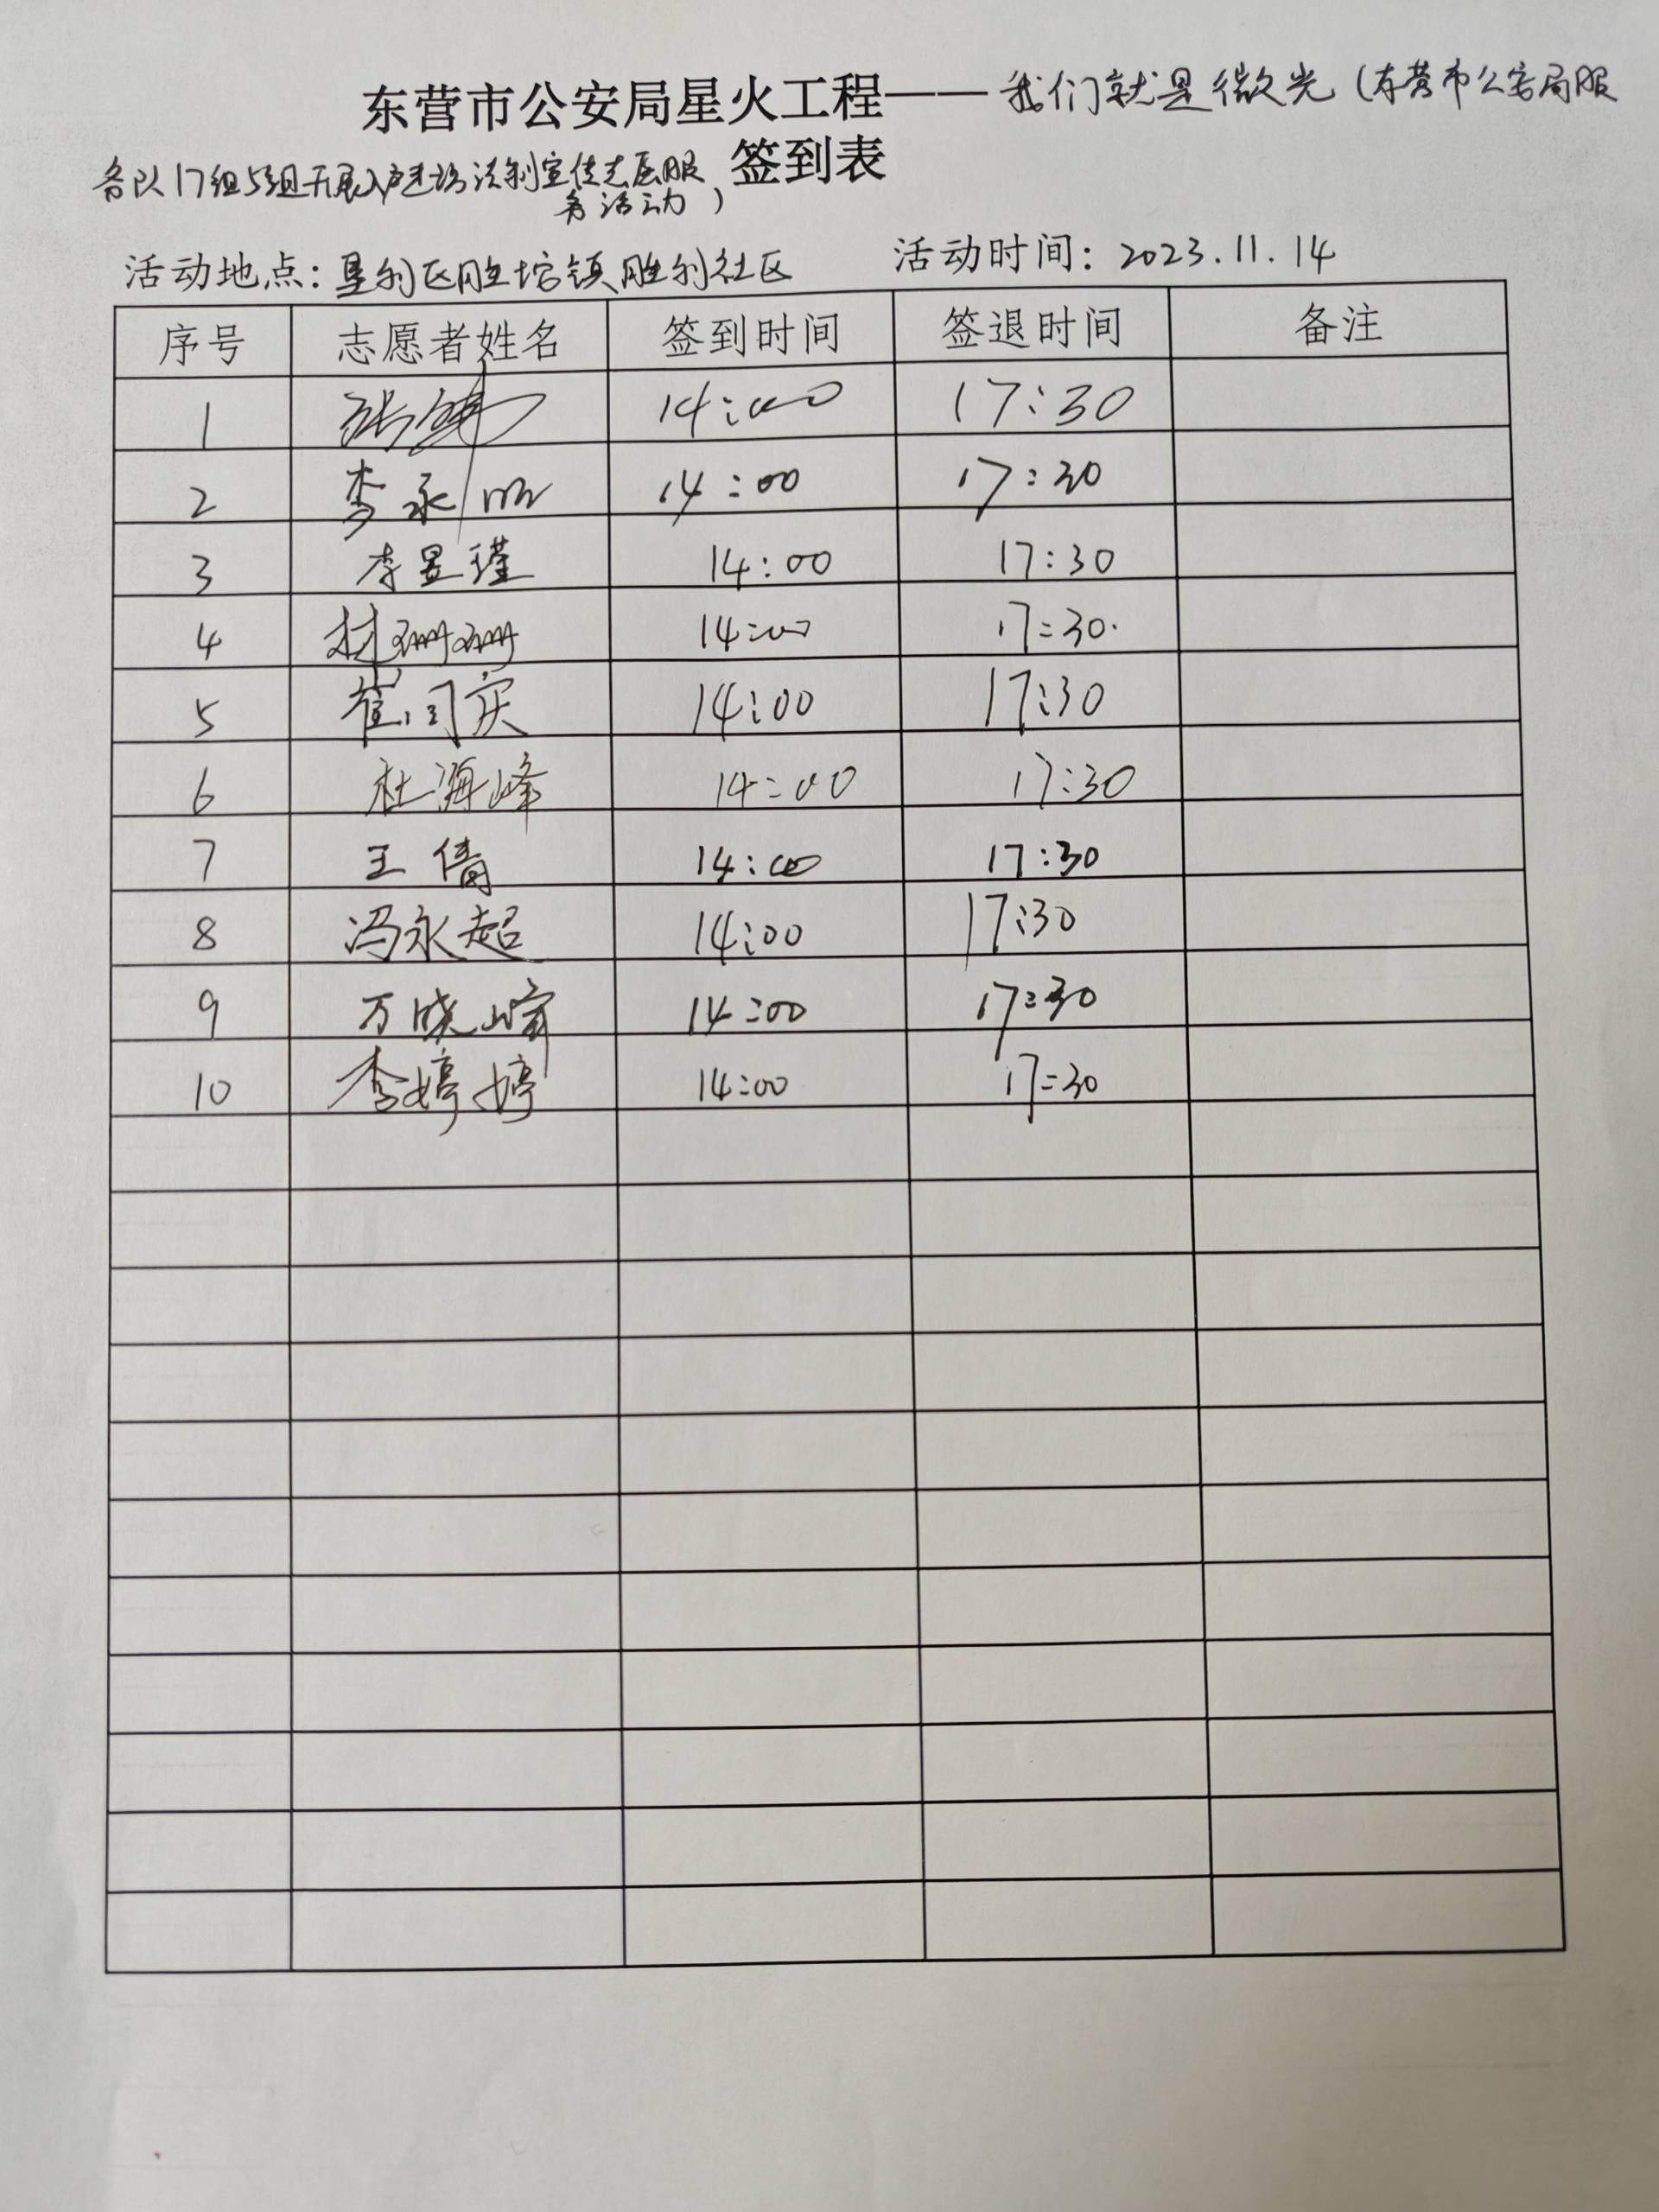 东营市公安局星火工程——我们就是微光(东营市公安局服
务队17组5组开展入户走访法制宣传志愿服 签到表
务活动)
活动地点:垦利区胜坨镇胜利社区 活动时间:2023.11.14
序号 志愿者姓名 签到时间 签退时间 备注
1 14:00 17:30
2 李永 14:00 17:30
3 李昱瑾 14:00 17:30
4 杜珊珊 14:00 17:30.
5 崔闫庆 14:00 17:30
6 杜海峰 14:00 17:30
7 王倩 14:00 17:30
8 冯永超 14:00 17:30
9 万晓峰 14:00 17:30
10 李婷婷 14:00 17:30